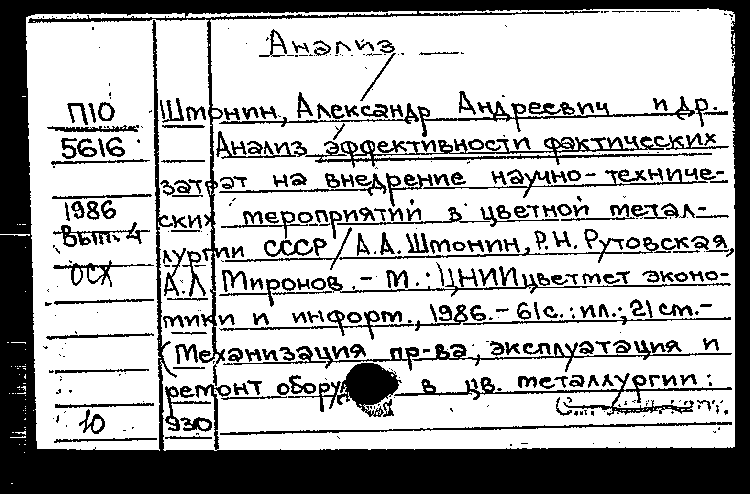 Анализ
П10 Штонин, Александр Андреевич и др.
5616 Анализ эффективности фактических
затрат на внедрение научно-техниче-
1986 ских мероприятий в цветной метал-
Вып. 4 лургии СССР / А.А. Штонин, Р.Н. Рутовская,
ОСХ А.Л. Миронов. - М.: ЦНИИцветмет эконо-
тики и информ., 1986. - 61с.: ил.; 21 см. -
(Механизация пр-ва, эксплуатация и
ремонт обору в цв. металлургии:
10 930